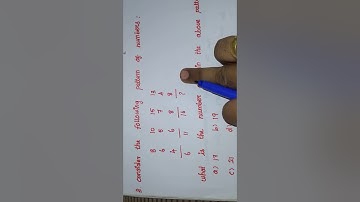 3. Consider the following pattern of numbers:
8 10 15 13
6 5 7 4
4 6 8 8
6 11 16 ?
what is the number in the above
a) 17 b) 19
c) 21 d